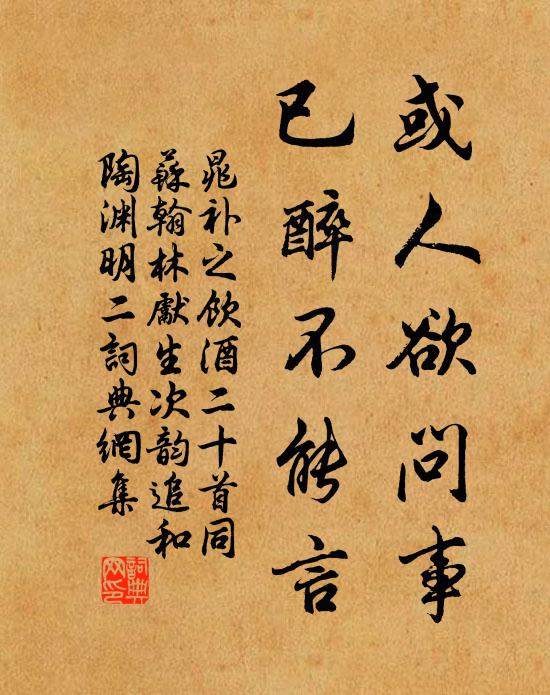 或人欲问事
已醉不能言
晁补之饮酒二十首同
蘇翰林獻生次韵追和
陶渊明二詞典網集
詞典
网印